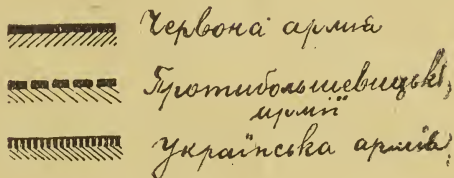 Червона армія
Протибольшевицькі
армії
Українська армія